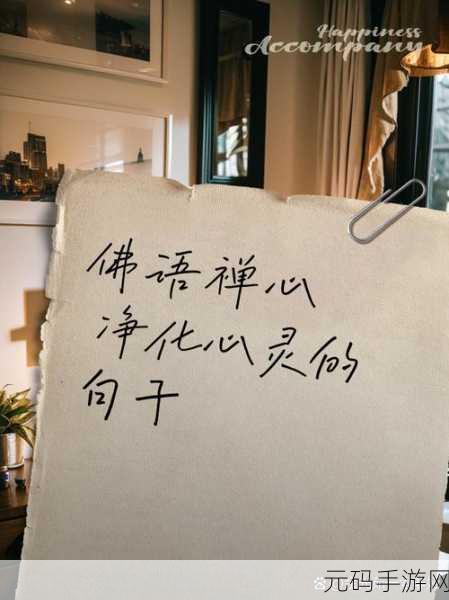 Happiness
Accompany
佛语禅心
净化心灵的
句子
元码手游网